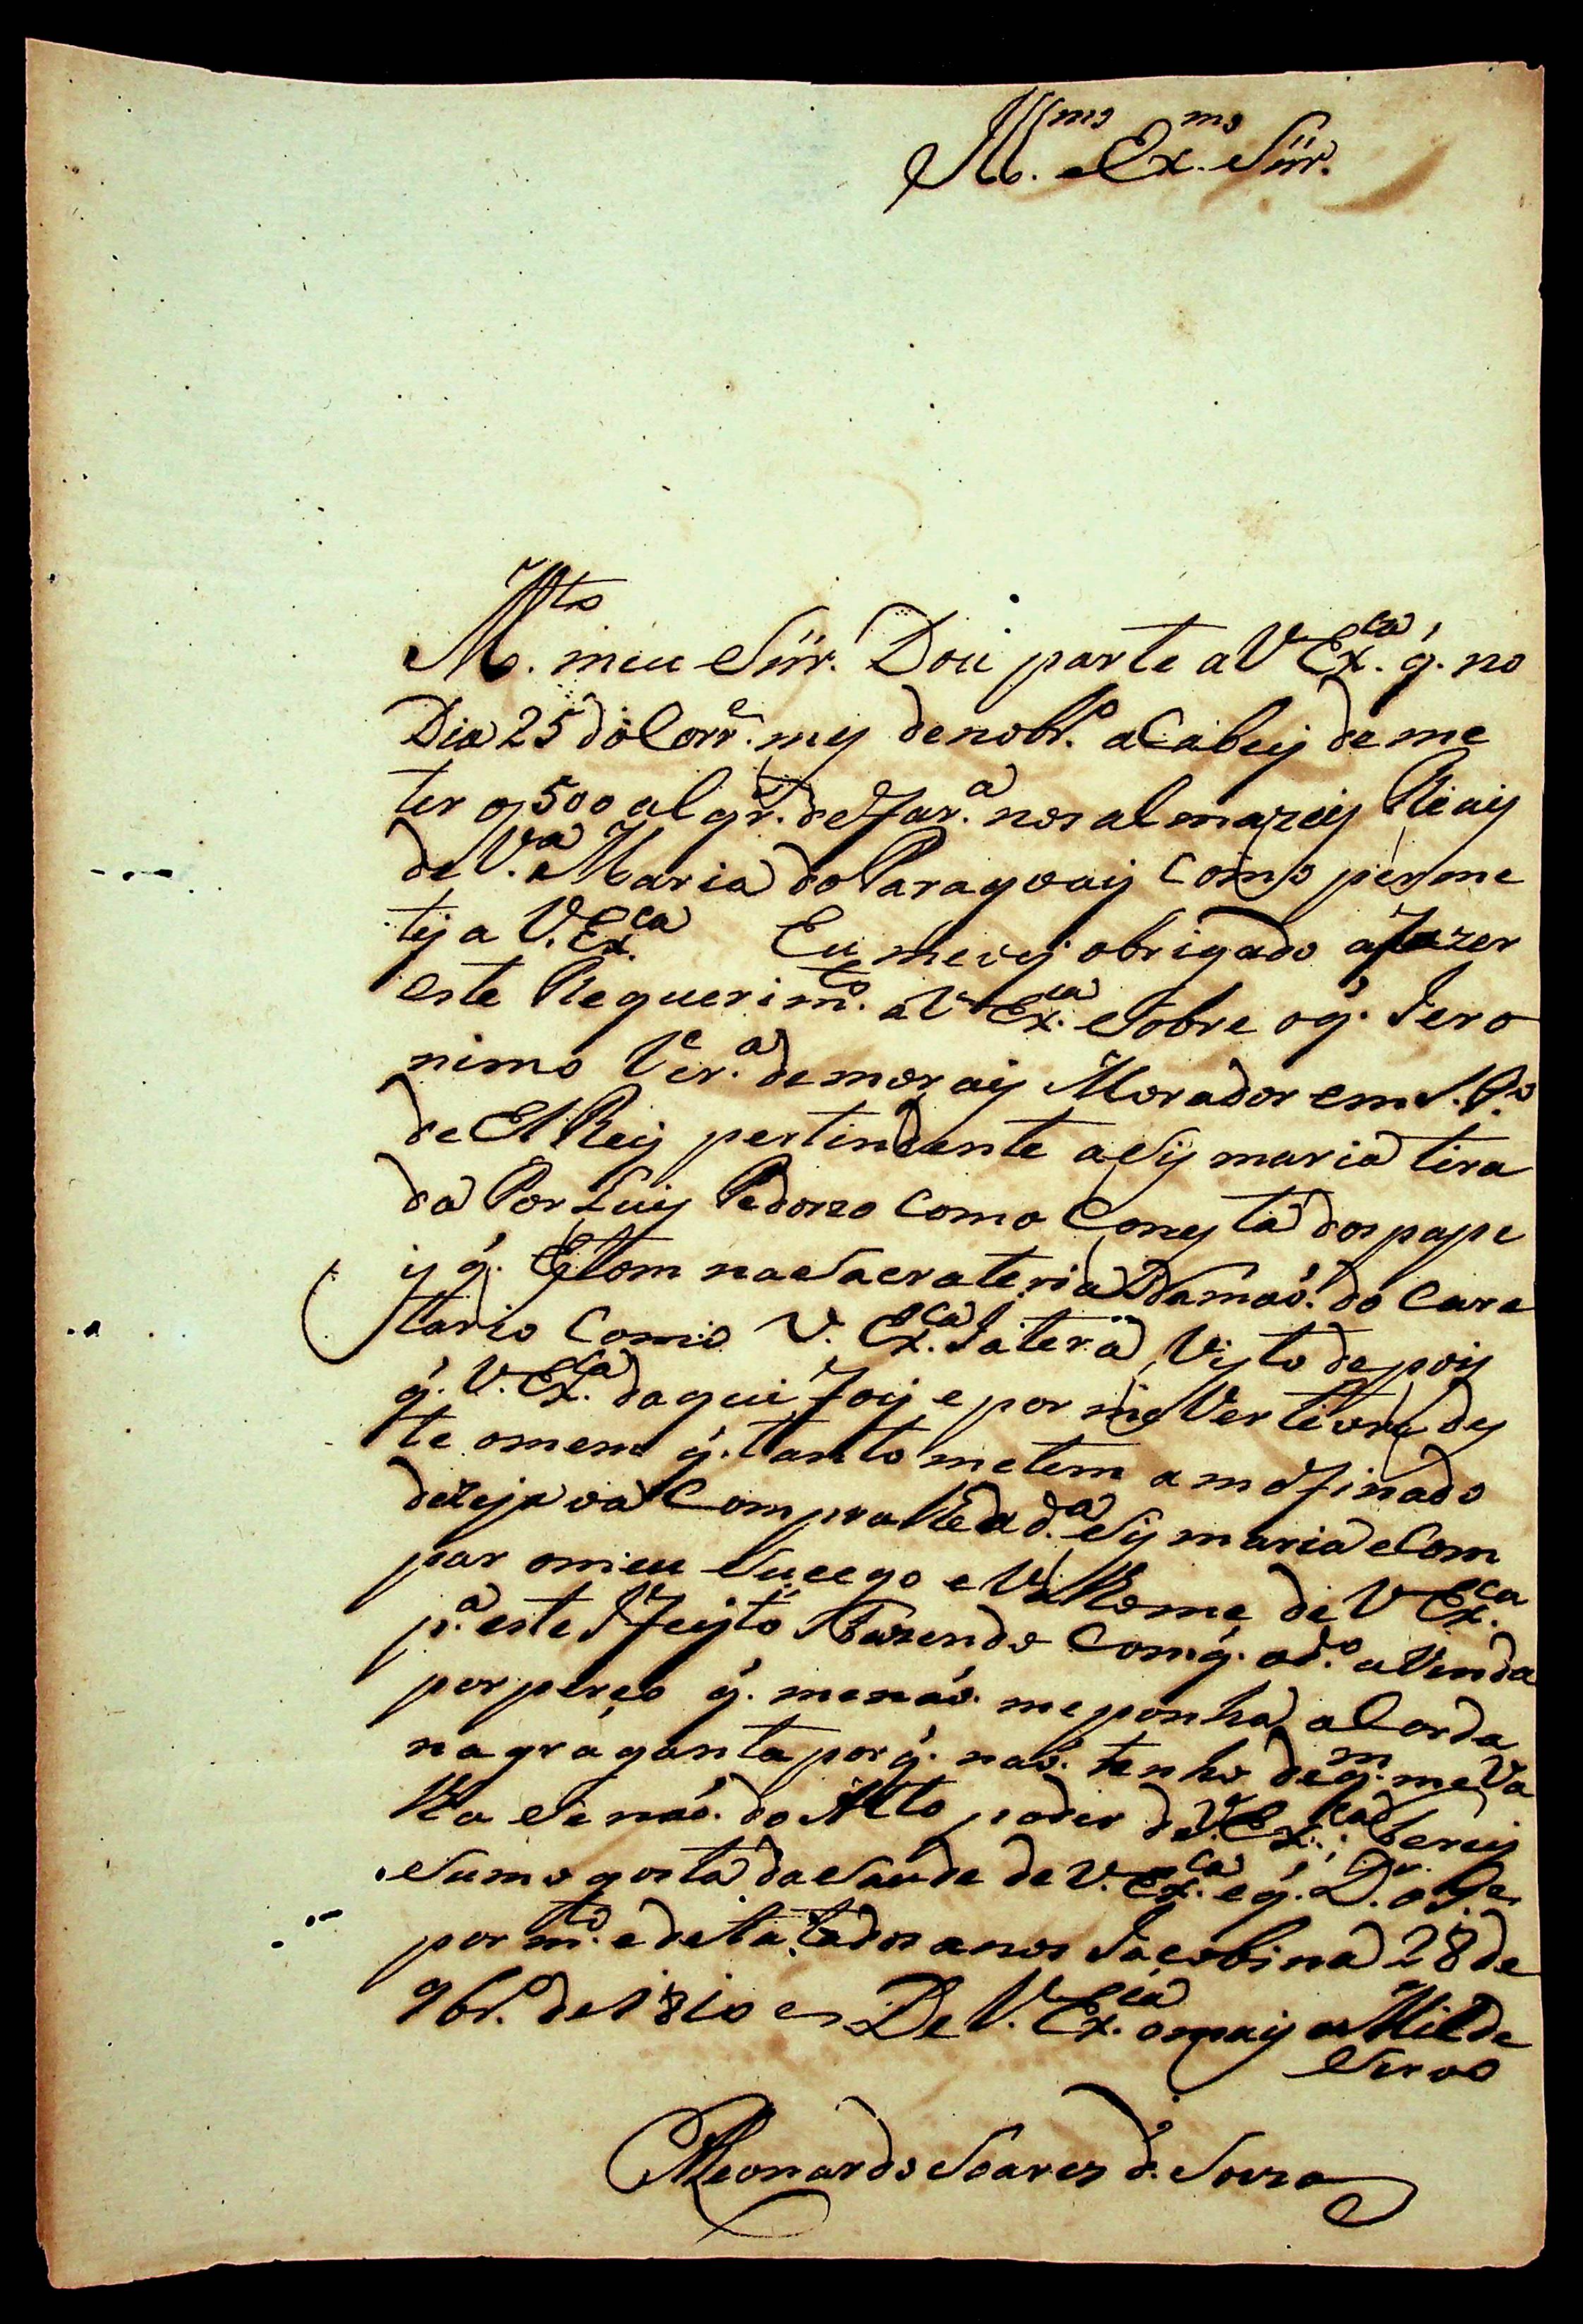 Ill.mo Ex.mo Sñr.
M.to meu Sñr. Dou parte a V Ex.ca q̃. no
Dia 25 do Corr.e mes de nobr.o aCabey de me
ter os 500 alqr.s de Far.a nos almazeis Reais
de V.a Maria do Paragoay como perme
ti a V. Ex.ca Eu me vej obrigado a Fazer
este Requerim.to a V Ex.ca Sobre o q̃. Jero
nimo da Morais Morador em S. P.o
de El Rey pertindente a Sismaria tira
da Por Luis Pedrozo Como Consta dos pape
is q̃. Estom na Sacrateria Damaõ. do Cacre
tario Como V. Ex.ca Ja tera Visto depois
q̃. V. Ex.ca daqui Foy e por me Ver Livre des
te omem q̃. tanto me tem amofinado
dezejava Comprar lhe a d.a Sismaria e Com
par o meu Sucego e Valhome de V Ex.ca
p.a este Efeyto Fazendo Com q̃. o d.o a Venda
por perço q̃. me naõ. me ponha a Corda
na graganta por q̃. naõ. tenho de q.m me Va
lha Se naõ. do Alto poder de V. Ex.ca
Sumo gosto da Saude de V. Ex.ca e q̃. D.s o G.e
por m.to e deLatados anos Jacobina 28 de
9br.o de 1810 De V. Ex.cia o mais uMilde
Servo
Leonardo Soares d.e Souza